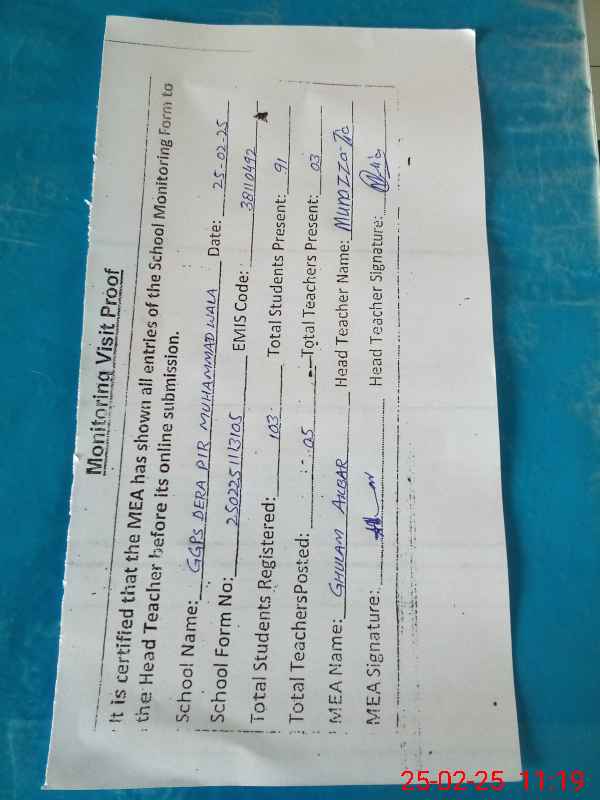 Monitoring Visit Proof
It is certified that the MEA has shown all entries of the School Monitoring Form to
the Head Teacher before its online submission.
School Name: GGPS DERA PIR MUHAMMAD WALA Date: 25-02-25
School Form No: 250225113105 EMIS Code: 38110492
Total Students Registered: 103 Total Students Present: 91
Total TeachersPosted: 05 Total Teachers Present: 03
MEA Name: GHULAM AKBAR Head Teacher Name:
MEA Signature: Head Teacher Signature:
25-02-25 11:19